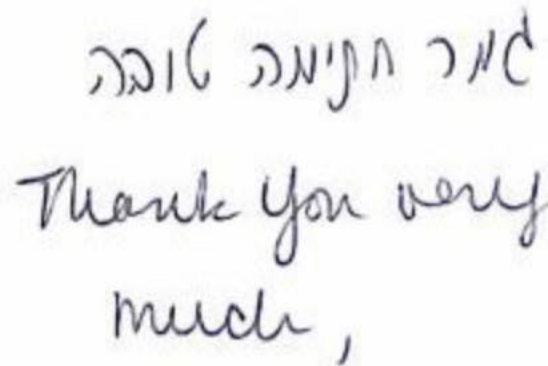 גמר חתימה טובה
Thank you very
much,